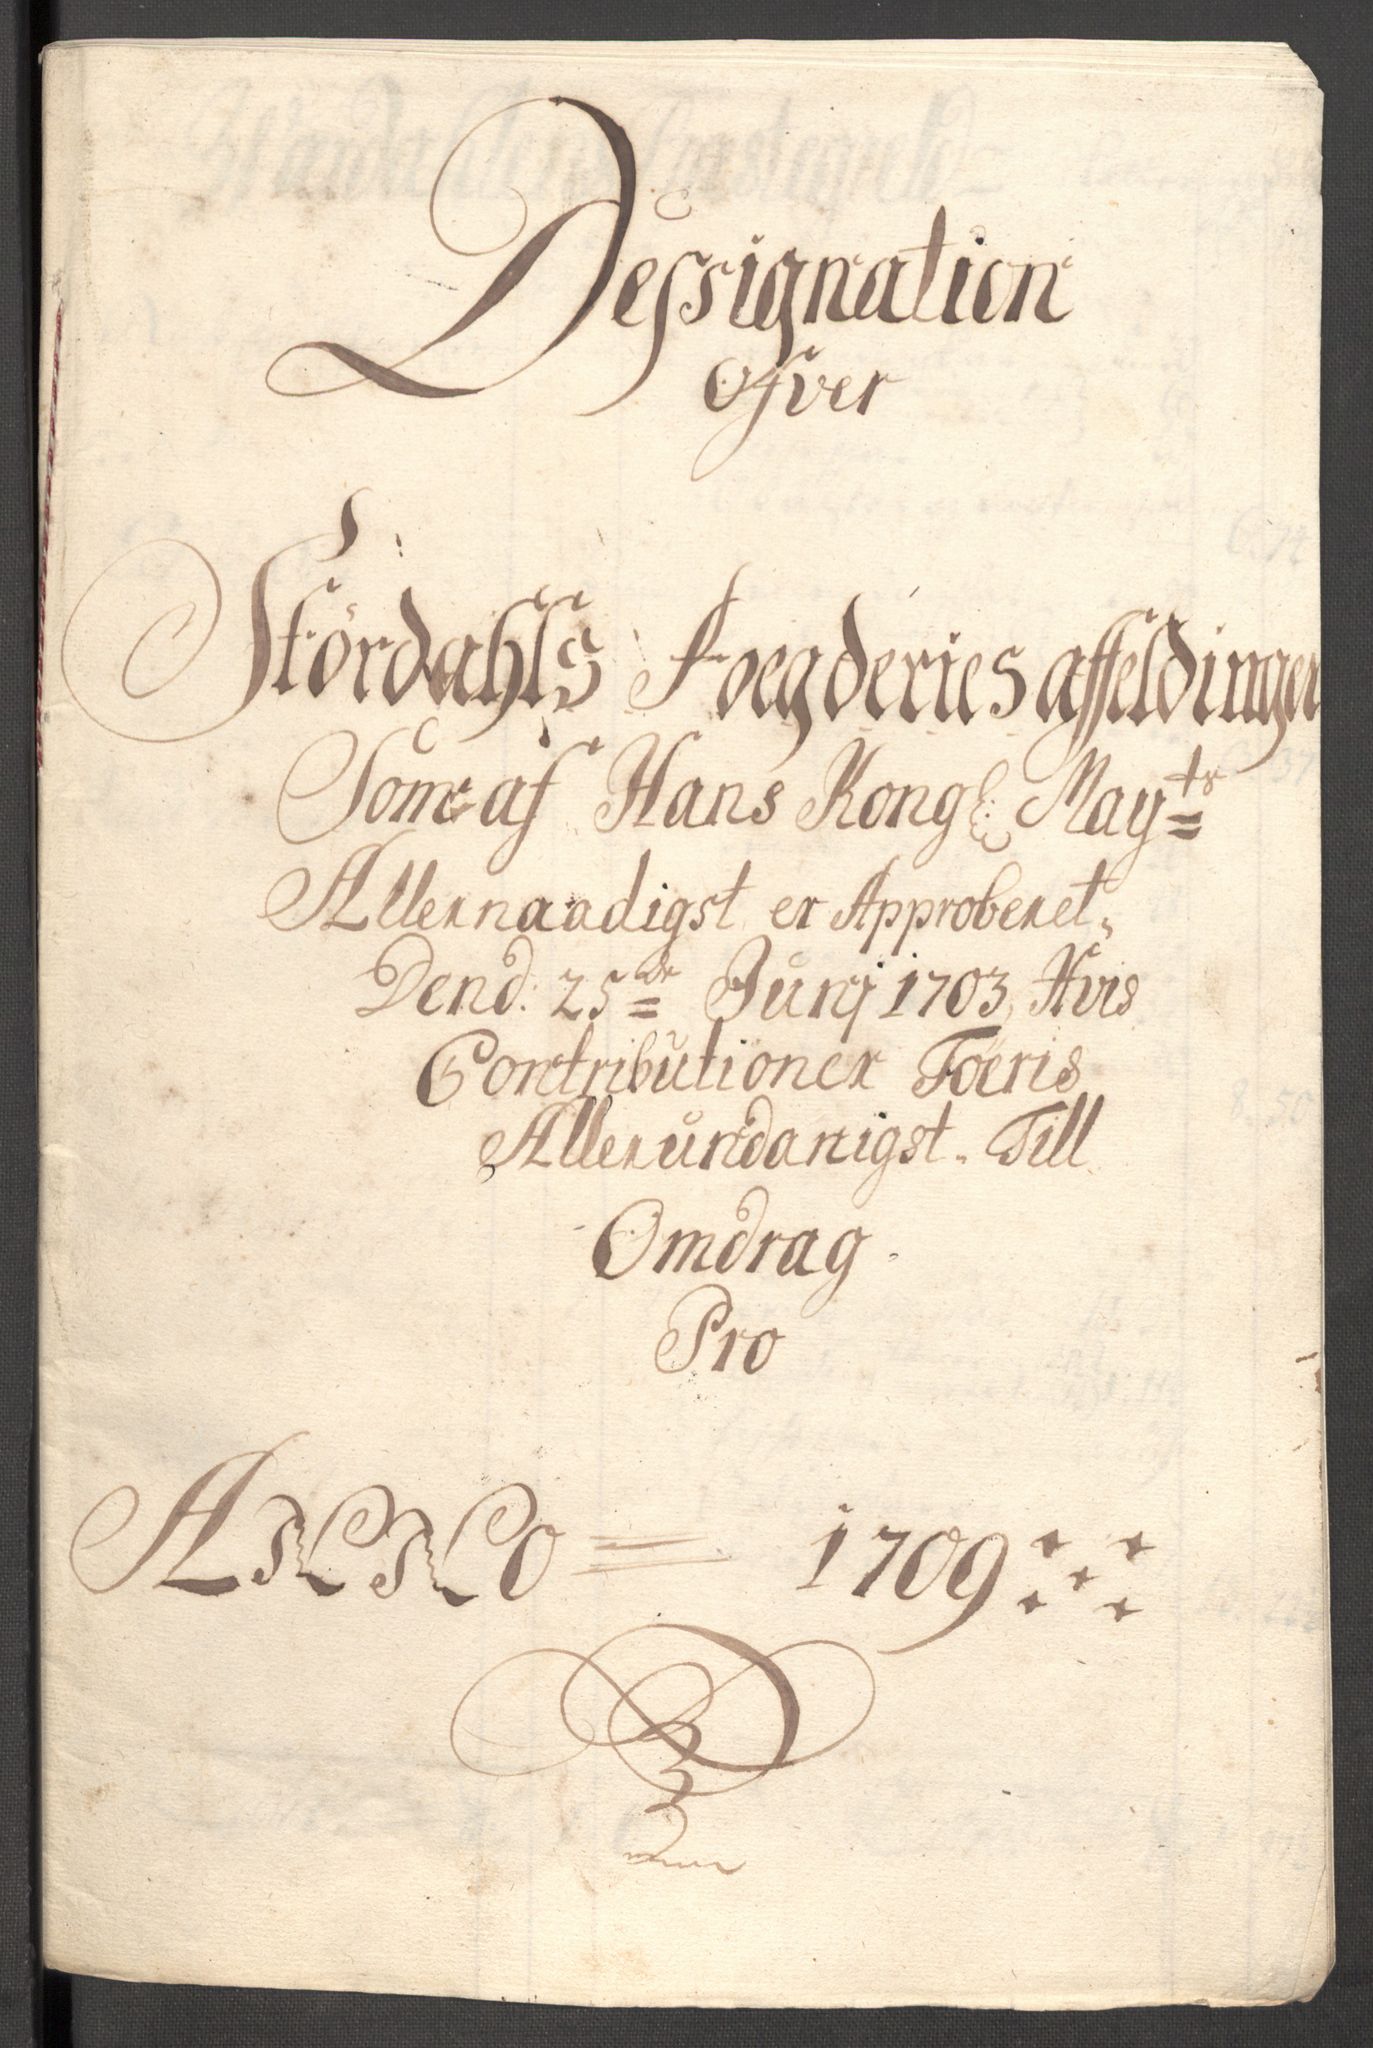 Dessignation
Ofver
Stördahls Foegderies affeldinger
Som af Hans Kongl: May:ts
Allernaadigst er Approberet,
Dend: 25de Junj 1703, Hvis
Contributioner Föeris
Allerundanigst. Till
Omdrag.
Pro
ANNO = 1709